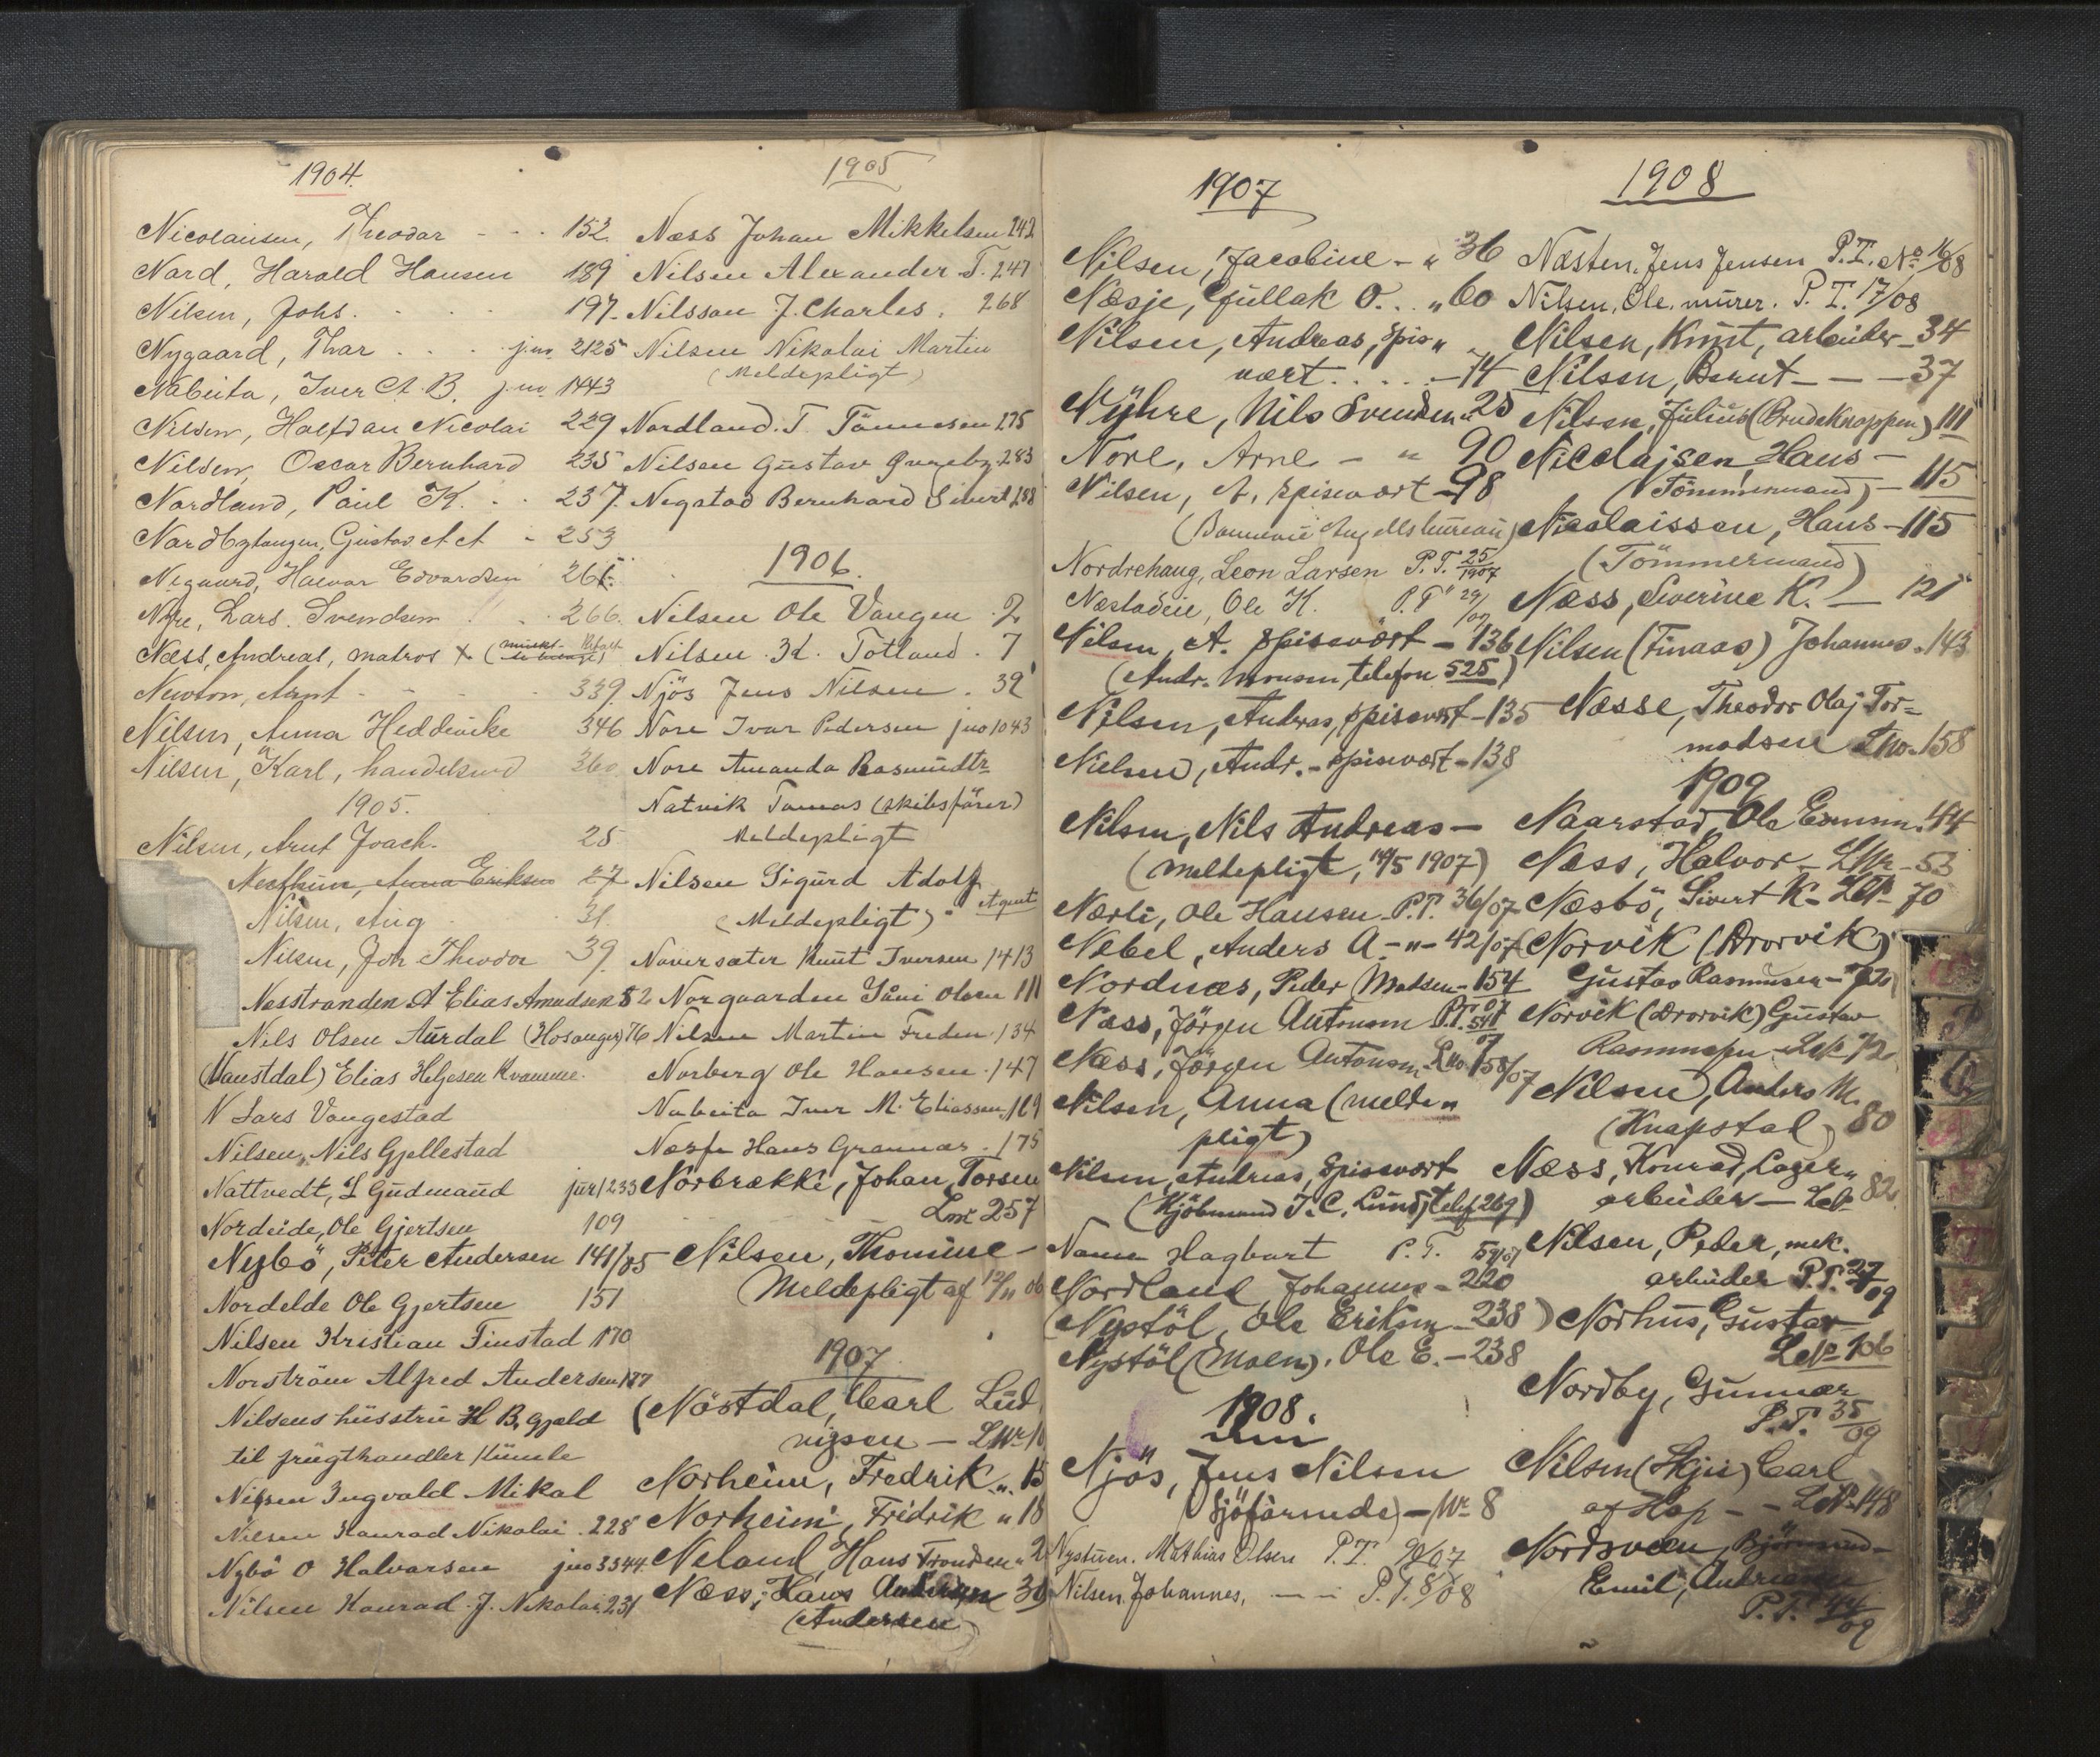 1904.
Nicolaisen, Theodor - - - 152.
Nord, Harald Hansen 189
Nilsen, Johs. . . . . 197.
Nygaard, Thor . . . jno. 2125
Nabeita, Iver A. B. jno. 1443
Nilsen, Halfdan Nicolai 229
Nilsen, Oscar Bernhard 235
Nordland, Paul K. . . 237.
Nordbytangen, Gustav A A - 253
Nygaard, Halvor Edvardsen 261.
Nyre, Lars Svendsen . 266.
Næss, Andreas, matros x
Newton, Arnt - - - - 339.
Nilsen, Anna Heddevike 346
Nilsen, Karl, handelsmd 360
1905.
Nilsen, Arnt Joach. 25
Anna Eriksen 27
Nilsen, Aug - 31.
Nilsen, Joh Theodor 39.
Nesstranden A Elias Amundsen 52
Nils Olsen Aurdal (Hosanger) 76
(Naustdal) Elias Helgesen Kvamme.
N Lars Vangestad
Nilsen, Nils Gjellestad
Nattvedt, L Gudmund jur/233
Nordeide, Ole Gjertsen 109
Nybö, Peter Andersen 141/05
Nordelde Ole Gjertsen 151
Nilsen Kristian Finstad 170
Norström Alfred Andersen 177
Nilsens hüsstrü H B. Gjeld
til frügthandler
Nilsen Ingvald Mikal
Nilsen Konrad Nikolai . 228
Nybö O Halvorsen jno 3344.
Nilsen Konrad J. Nikolai 231
1905
Næss Johan Mikkelsen 242
Nilsen Alexander T. 247
Nilsson J. Charles . 268
Nilsen Nikolai Martin
(Meldepligt)
Nordland. T Tönnesen 275
Nilsen Gustav 283
Negstad Bernhard Sivert 288
1906.
Nilsen Ole Vangen . 2
Nilsen . Totland . 7
Njös Jens Nilsen . 39
Nore Ivar Pedersen jno 1043
Nore Amanda Rasmüsdtr
Natvik Tomas (skibsförer)
Meldepligt
Nilsen Sigürd Adolf
(Meldepligt) - Agent
Naversæter Knüt Iversen 1413
Norgaarden Olsen 111
Nilsen Martin Freden . 134
Norberg Ole Hansen . 147
Nabeita Iver M. Eliassen 169
Hans Grannas . 175
Norbrække, Johan Torsen
Lnr 257
Nilsen, Thomine -
Meldepligt af 12/11 06
1907
(Nöstdal, Carl Lüd
vigsen - LNr 10
Norheim, Fredrik „ 15
Norheim, Fridrik „ 18
Neland, Hans Tronden „ 2
Næss, Hans Andersen 30
(Andersen)
1907
Nilsen, Jacobine - „ 36
Næsje, Güllak O. . . „ 60
Nilsen, Andreas, Spis„
vært . . . . . - 14
Nÿhre, Nils Svendsen „ 25
Nore, Arne - „ 90
Nilsen, A. spisevært - 98
Nordrehaug, Leon Larsen P.T. 25/1907
Næstadeie, Ole K. P.T " 29/07
Nilsen, A. spisevært - 136
(Andr. Monsen, telefon 525)
Nilsen, Andreas, spisevært - 135
Nielsen, Andr. - spisevært - 138
Nilsen, Nils Andreas -
(meldepligt, 14/5 1907)
Nærli, Ole Hansen - P.T. 36/07
Nebel, Anders A - „ - 42/07
Nordnæs, Peder Madsen - 154
Næss, Jörgen Antonsen P.T. 54/07
Næss, Jörgen Antonsen, Lno 158/07
Nilsen, Anna (melde„
pligt)
Nilsen, Andreas, Spisevært
(Kjöbmand J. C. Lund, telef 269)
Hagbart P. T. 59/07
Nordland, Johannes - 220
(Nystöl, Ole Eriksen - 238)
Nystöl (Moen), Ole E. - 238
1908.
Njös, Jens Nilsen
(Sjöfarende) - Nr 8
Nystuen. Mathias Olsen P.T. 90/07
Nilsen Johannes, - - P.T. 8/08
1908
Næsten, Jens Jensen P.T. No 16/08
Nilsen, Ole, mürer. P.T. 17/08
Nilsen, Knüt, arbeider - 34
Nilsen, Bernt - - - 37
Nilsen, Julius (Brudeknappen) 111
Nicolajsen, Hans -
(Tömmermand) - 115
Nicolaissen, Hans - 115
(Tömmermand)
Næss, Severine K. - 121
Nilsen (Finaas) Johannes . 143
Næsse, Theodor Olaj Tor-
modsen Lno. 158
1909
Naarstad, Ole Edmun. 44
Næss, Halvor - LNr - 53
Næsbö, Sivert K - LNr 70
Norvik (Drorvik)
Gustav Rasmusen - 72
Norvik (Drorvik) Gustav
72
Nilsen, Anders M.
(Knapstad) 80
Næss, Konrad, Lager„
arbeider - 82
Nilsen, Peder, mek.
arbeider P.T. 27/09
Norhus, Gustav
106
Nordby, Gunnar
P.T. 35/09
Nilsen Carl
af Hop - - 148
Nordsveen,
Emil,
P.T. 44/09